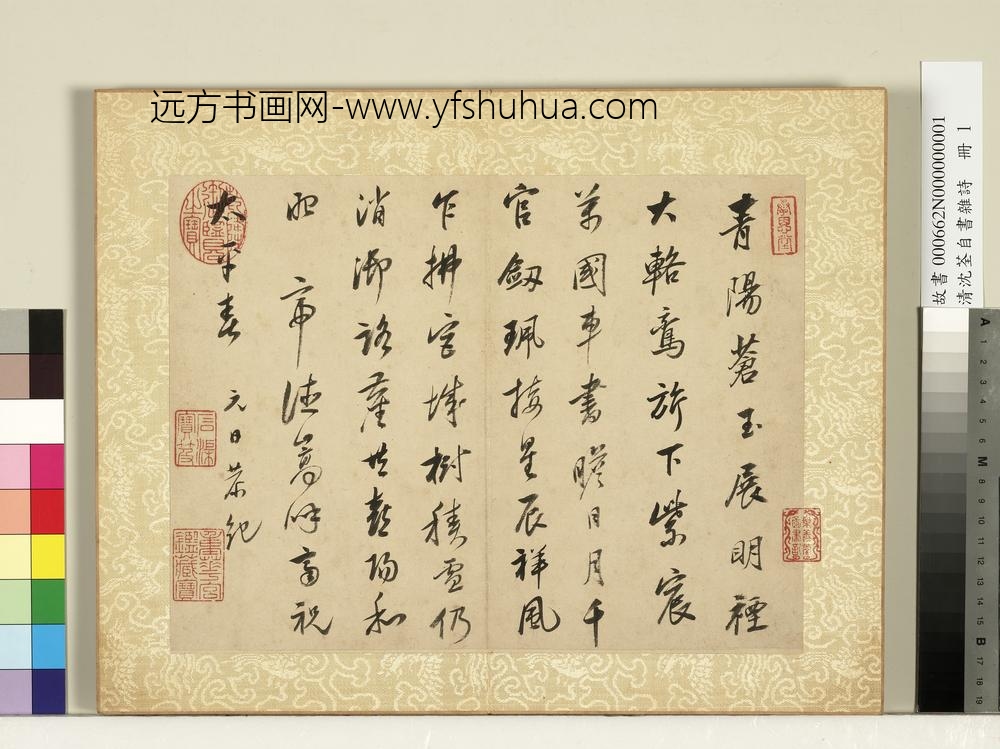 远方书画网-www.yfshuhua.com
故書 000662N000000001
清沈荃自書雜詩 冊 1
青陽蒼玉展明禋
大輅鸞旂下紫宸
萬國車書瞻日月千
官劔珮接星辰祥風
乍拂宮城樹積雪仍
消御路塵共喜陽和
昭 帝德嵩呼齊祝
太平春 元日恭紀
石渠寶笈
重華宮鑑藏寶
A 1 2 3 4 5 6 M 8 9 10 11 12 13 14 15 B 17 18 19